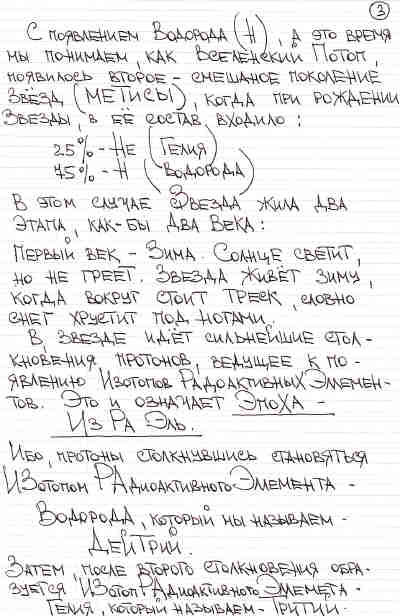 3
С появлением Водорода (Н), а это время
мы понимаем, как Вселенский Потоп,
появилось второе - смешаное поколение
Звёзд (Метисы), когда при рождении
Звезды, в её состав входило:
25% - Не (Гелия)
75% - Н (Водорода)
В этом случае Звезда жила два
этапа, как-бы два века:
Первый век - Зима. Солнце светит,
но не греет. Звезда живёт зиму,
когда вокруг стоит треск, словно
снег хрустит под ногами.
В звезде идёт сильнейшие стол-
кновения протонов, ведущее к по-
явлению Изотопов Радоактивных Элемен-
тов. Это и означает Эпоха -
Из Ра Эль.
Ибо, протоны столкнувшись становяться
ИЗотопом РАдиоактивного Элемента -
Водорода, который мы называем -
Дейтрий.
Затем, после второго столкновения обра-
зуется Изотоп РАдиоактивного Элемета -
Гелия, который называем - Тритий.